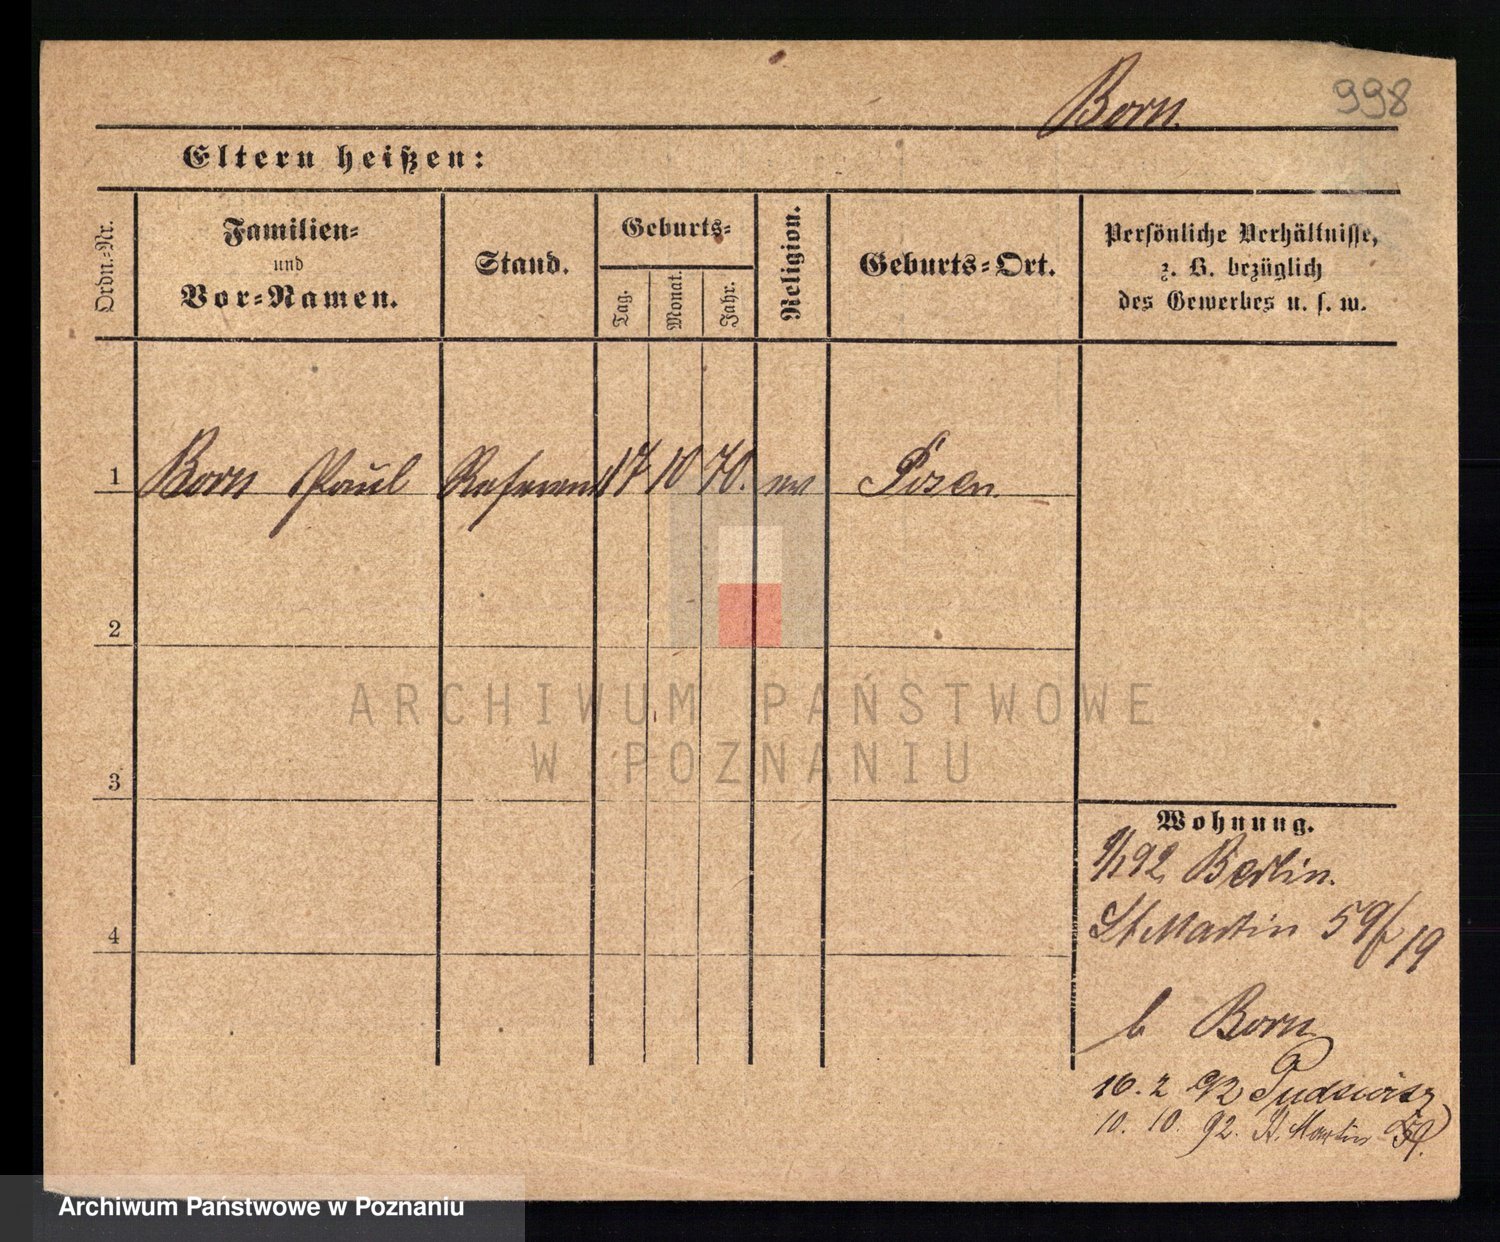 Born.
998
Eltern heißen:
Ordn.-Nr.
Familien-
und
Vor-Namen.
Stand.
Geburts-
Tag.
Monat.
Jahr.
Religion.
Geburts-Ort.
Persönliche Verhältnisse,
z. B. bezüglich
des Gewerbes u. s. w.
1 Born Paul Referend 17 10 70. ev Posen.
2
3
4
ARCHIWUM PAŃSTWOWE
W POZNANIU
Wohnung.
92 Berlin.
St Martin 59/ 19
b Born
16. 2 92 Pudewitz
10. 10. 92. St. Martin
Archiwum Państwowe w Poznaniu